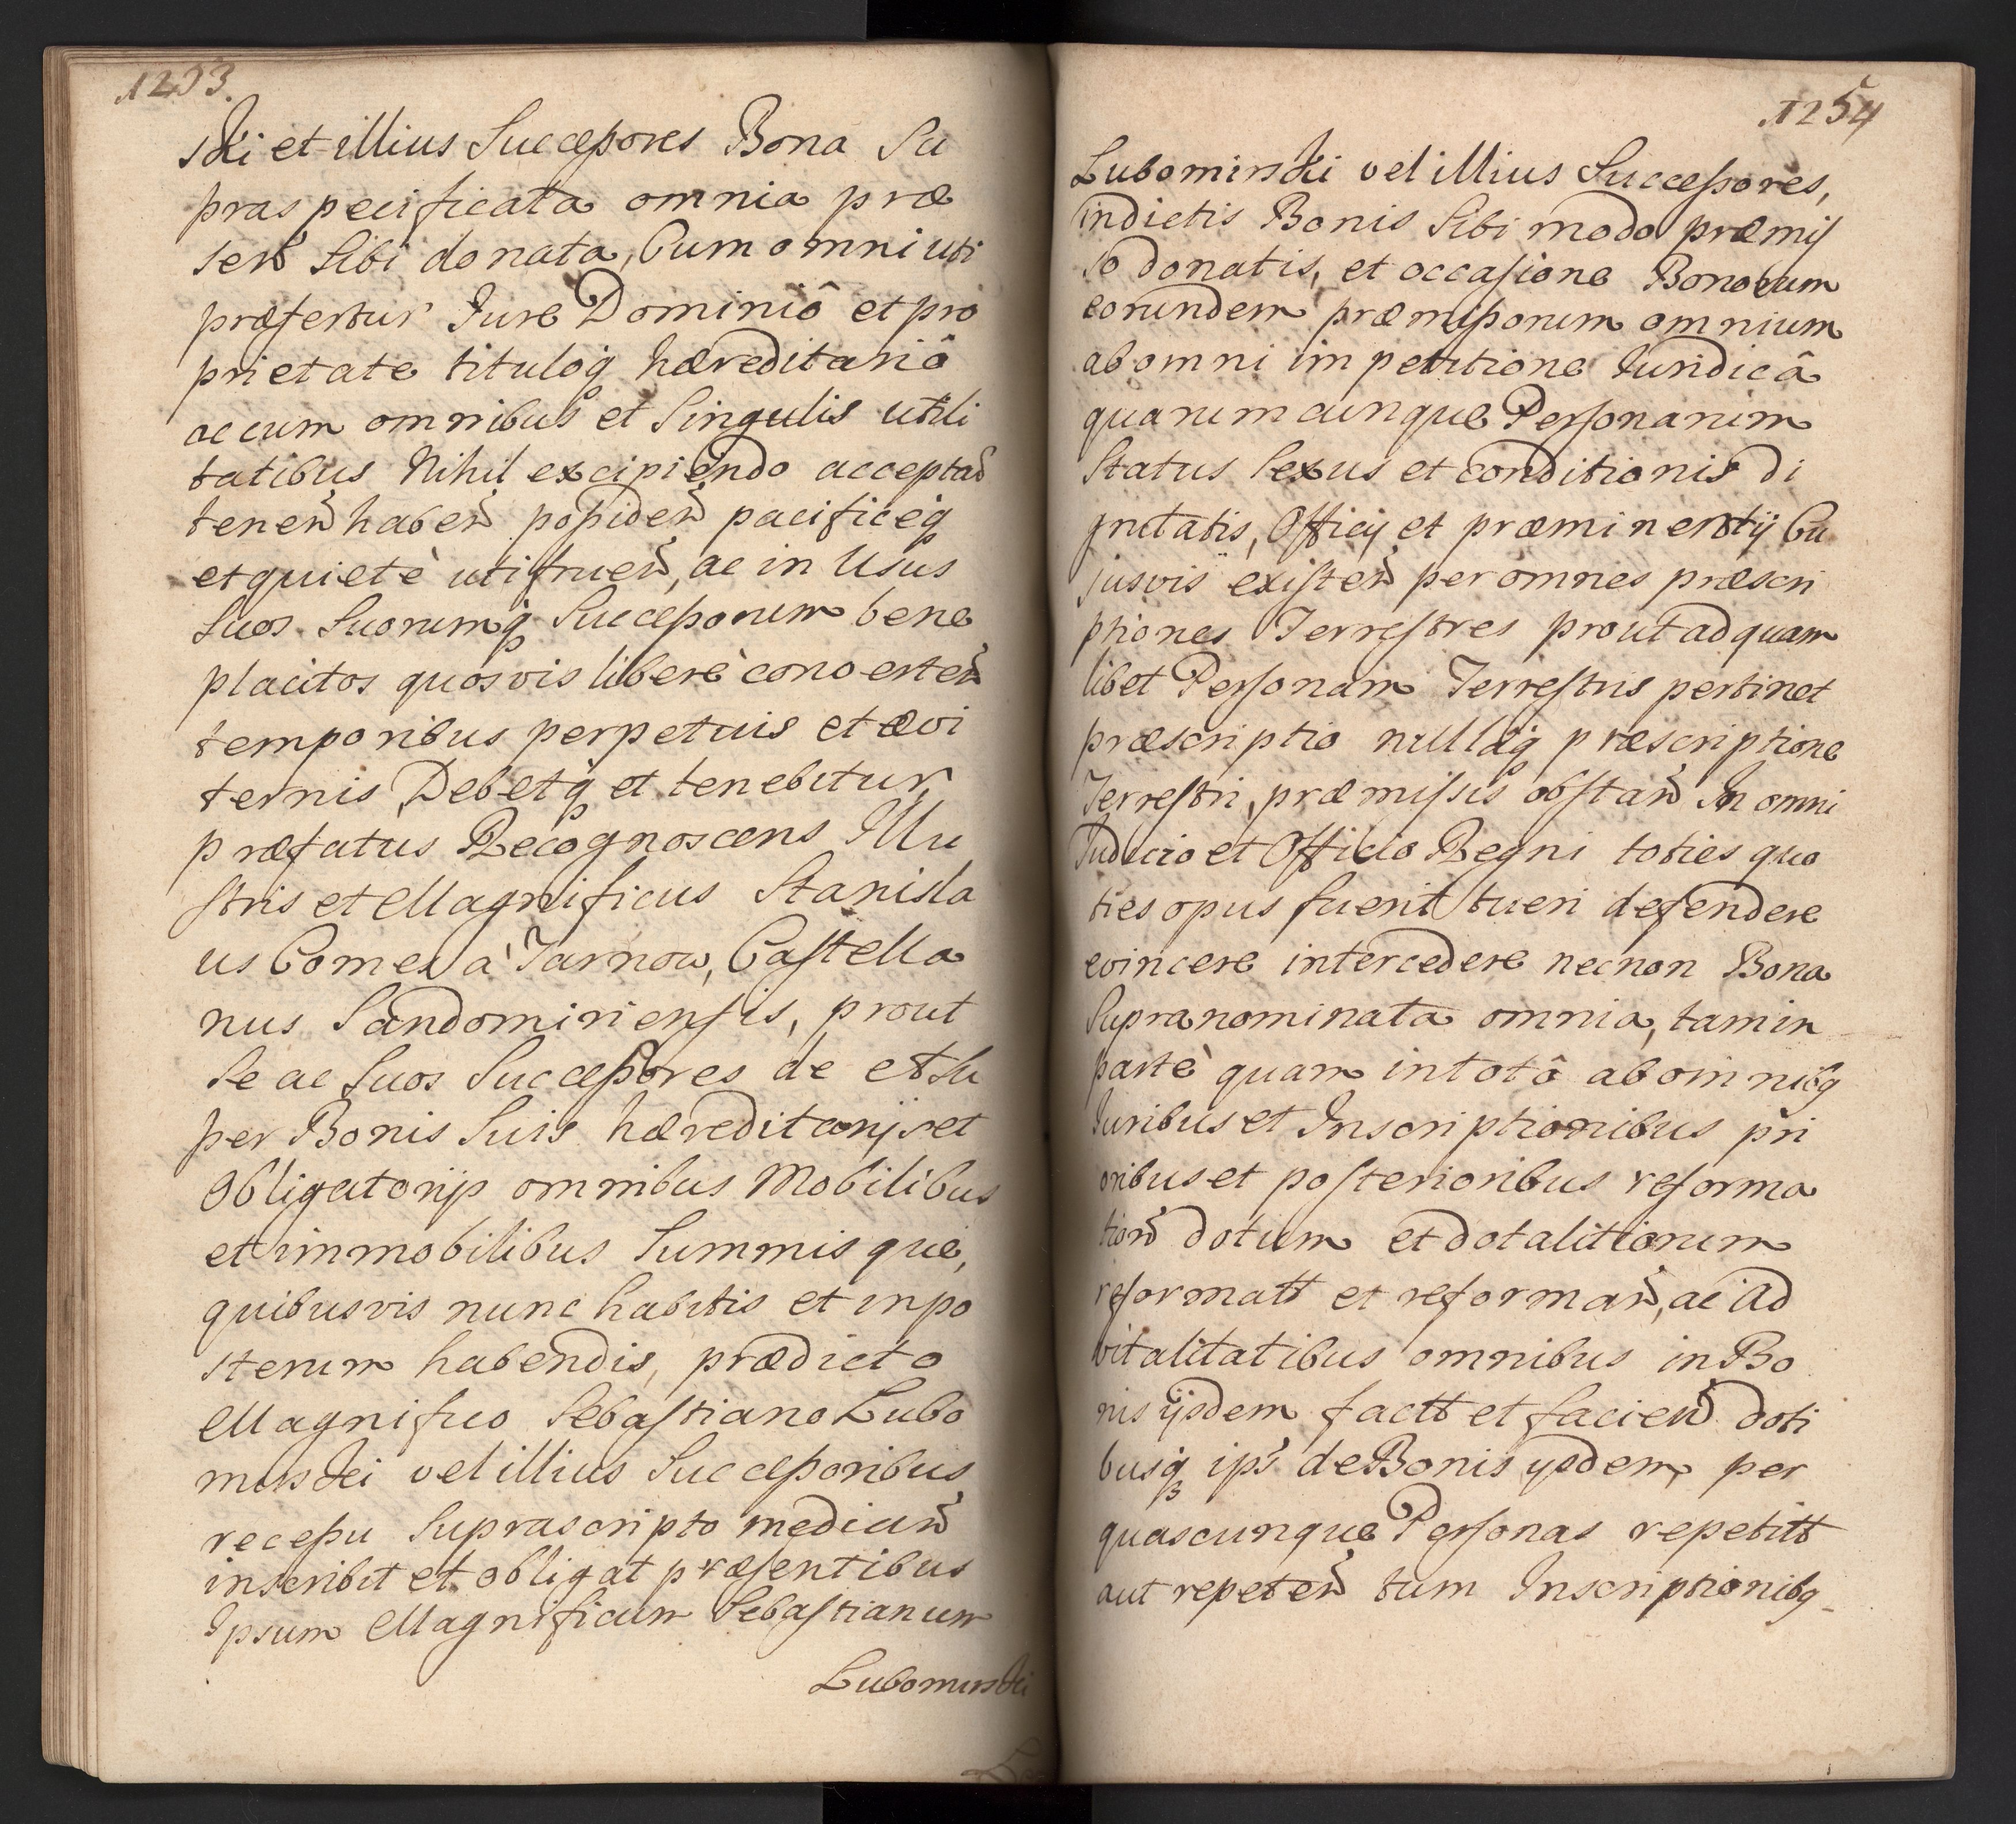 1253.
ski et illius Succeſsores Bona Su
praspecificata omnia præ
sen̄ Sibi donata, Cum omni uti
præfertur Jure Dominiô et pro
prietate tituloq hæreditariô
ac cum omnibus et Singulis utili
tatibus Nihil excipiendo acceptan̄
tenen̄ haben̄ poſsiden̄ pacificeq
et quietè utifruen̄, ac in Usus
Suos Suorumq Succeſsorum bene
placitos quosvis liberè converten̄
temporibus perpetuis et ævi
ternis, Debetq et tenebitur
præfatus Recognoscens Illu
ſtris et Magnificus Stanisla
us Comes à Tarnow, Caſtella
nus Sandomirienſis, prout
Se ac Suos Succeſsores de et Su
per Bonis Suis hæreditarijs et
Obligatorijs omnibus Mobilibus
et immobilibus Summis que,
quibusvis nunc habitis et in po
sterum habendis, prædicto
Magnifico Sebaſtiano Lubo
mirski vel illius Succeſsoribus
receſsu Suprascripto median̄
inscribit et obligat præſentibus
Ipsum Magnificum Sebaſtianum
Lubomirski
1254
Lubomirski vel illius Succeſsores,
in dictis Bonis Sibi modo præmiſ
so donatis, et occaſione Bonorum
eorundem præmiſsorum omnium
ab omni impetitione Juridicâ
quarumcunque Perſonarum
Status Sexus et conditionis di
gnitatis, Officij et præminentij Cu
jusvis exiſten̄ per omnes præscri
ptiones Terreſtres prout ad quam
libet Perſonam Terreſtris pertinet
præscriptio nullaq præscriptione
Terreſtri, præmiſsis obſtan̄ In omni
Judicio et Officio Regni toties quo
ties opus fuerit tueri defendere
evincere intercedere necnon Bona
Supranominata omnia, tam in
partè quam in totô ab omnibq
Juribus et Inscriptionibus pri
oribus et poſterioribus reforma
tion̄ dotum et dotalitiorum
reformatt et reforman̄, ac ad
vitalitatibus omnibus in Bo
nis ijsdem factt et facien̄ doti
busq ips̄ de Bonis ijsdem, per
quascunque Perſonas repetitt
aut repeten̄ tum Inscriptionibq